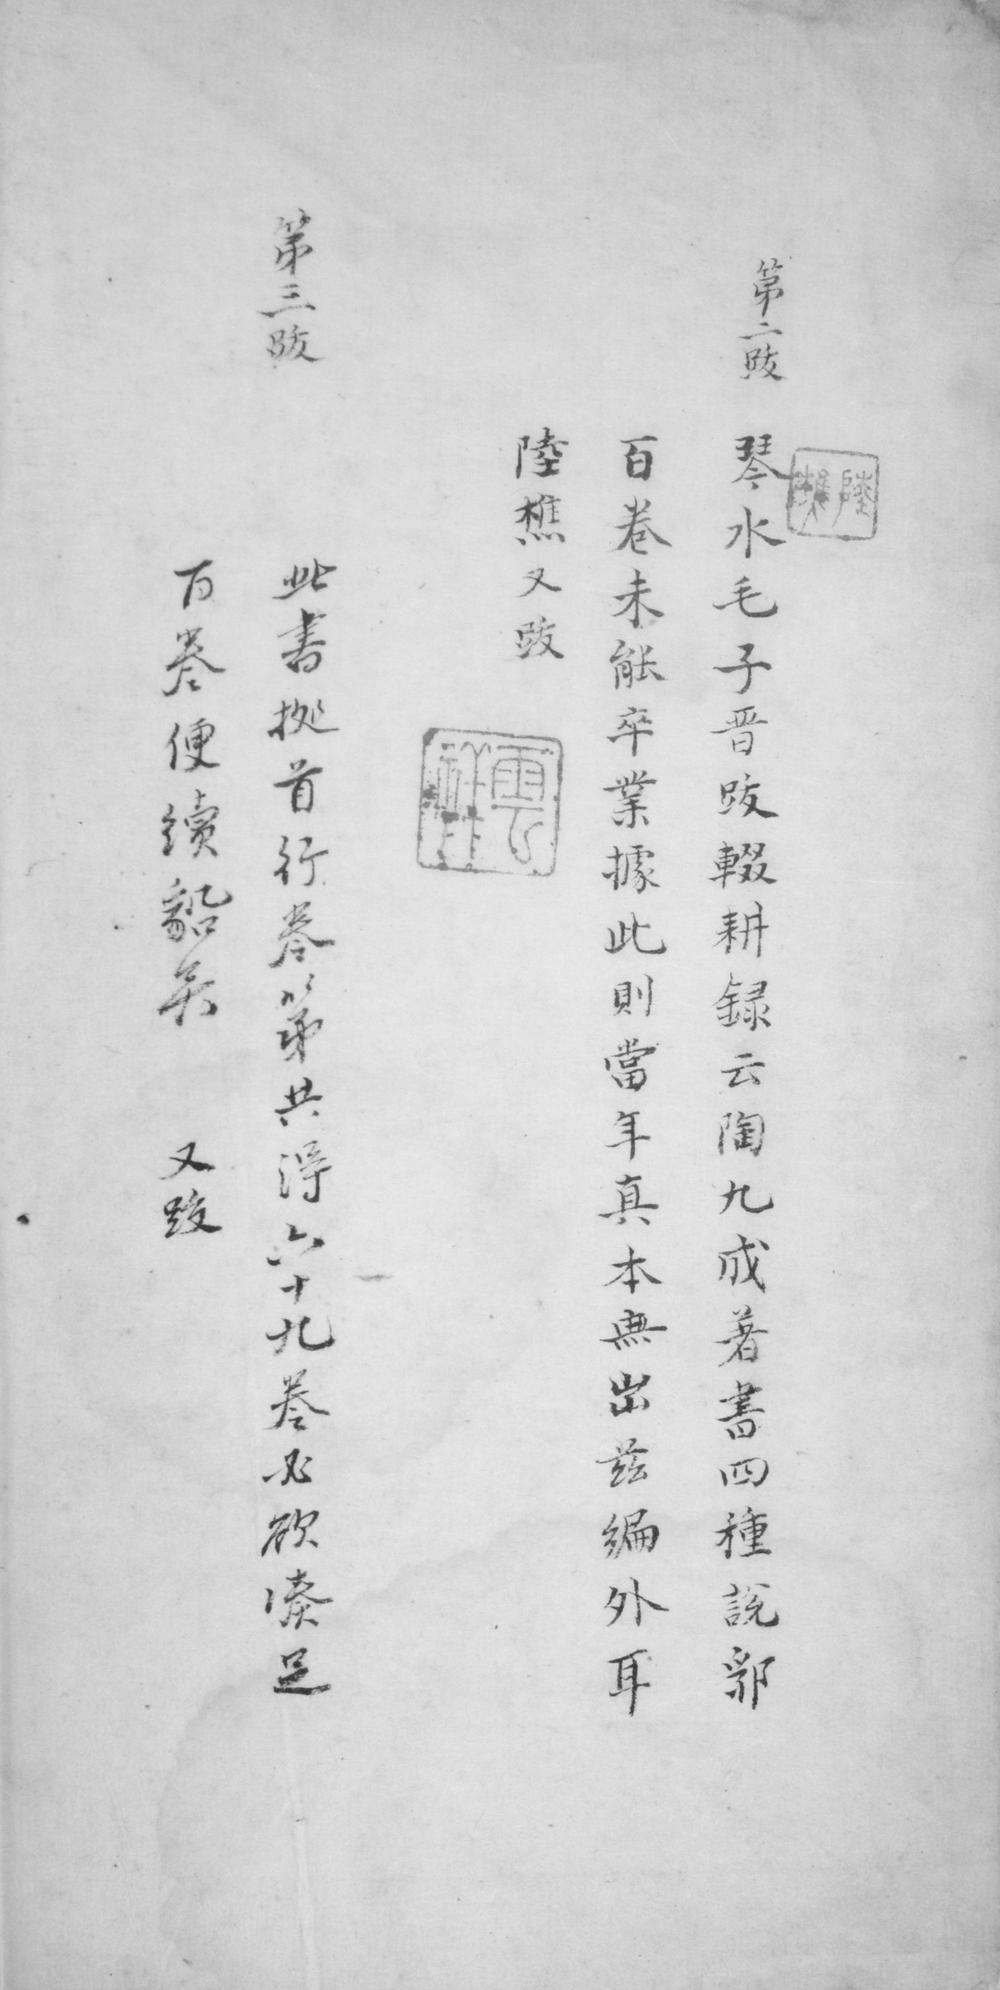 第二跋
琴水毛子晋跋輟耕録云陶九成著書四種說郛
百卷未能卒業據此則當年真本無出茲編外耳
陸樵又跋
陸樵
雲
第三跋
此書拠首行卷第共得六十九卷必欲湊足
百卷便續貂矣 又跋